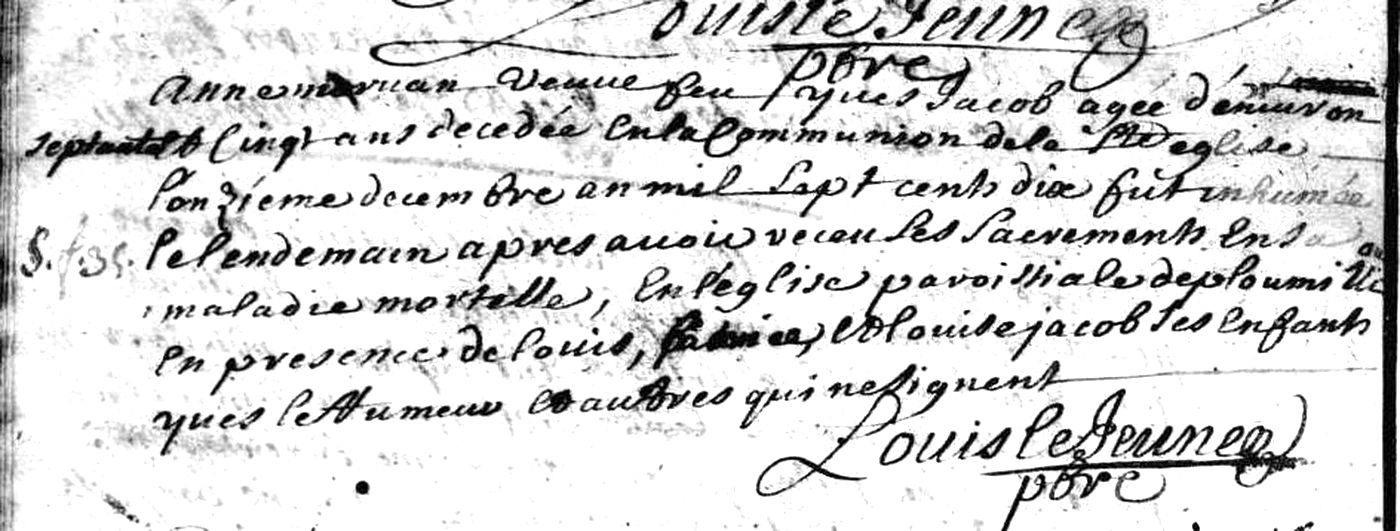 Louis le Jeune
pbre
Anne moruan veuue feu yues Jacob agée d'enuiron
septante & Cinq ans decedée en la Communion de la Ste eglise
l'onzieme decembre an mil sept cents dix fut inhumée
le lendemain apres auoir receu les sacrements en sa
maladie mortelle, en l'église paroissiale de ploumi
en presence de louis, et louise jacob ses enfants
yues le et autres qui ne signent
Louis le Jeune
pbre